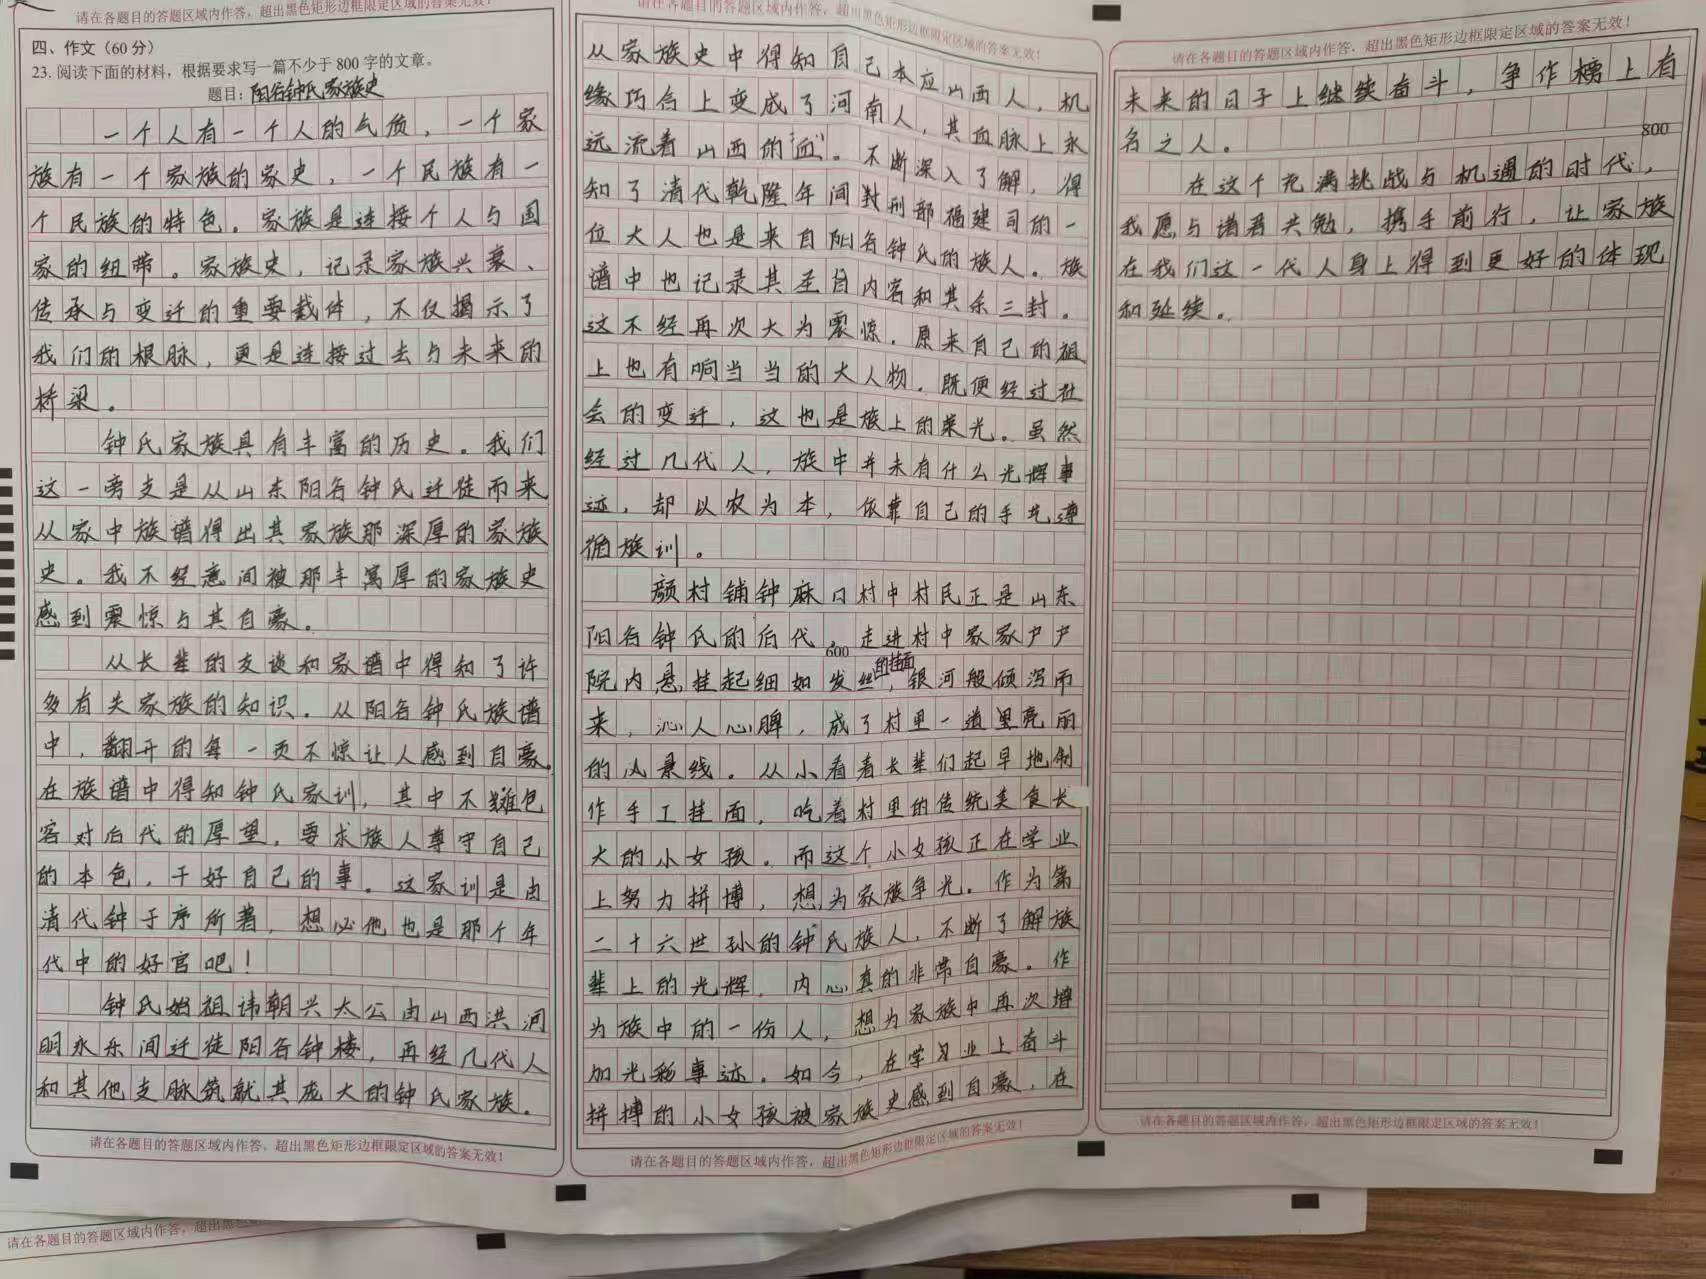 请在各题目的答题区域内作答，超出黑色矩形边框限定区域的答案无效！
四、作文（60分）
23. 阅读下面的材料，根据要求写一篇不少于800字的文章。
题目：阳谷钟氏家族史
一个人有一个人的气质，一个家
族有一个家族的家史，一个民族有一
个民族的特色。家族是连接个人与国
家的纽带。家族史，记录家族兴衰、
传承与变迁的重要载体，不仅揭示了
我们的根脉，更是连接过去与未来的
桥梁。
钟氏家族具有丰富的历史。我们
这一旁支是从山东阳谷钟氏迁徙而来
从家中族谱得出其家族那深厚的家族
史。我不经意间被那丰富厚的家族史
感到震惊与其自豪。
从长辈的交谈和家谱中得知了许
多有关家族的知识。从阳谷钟氏族谱
中，翻开的每一页不惊让人感到自豪。
在族谱中得知钟氏家训，其中不难包
容对后代的厚望，要求族人尊守自己
的本色，干好自己的事。这家训是由
清代钟于序所著，想必他也是那个年
代中的好官吧！
钟氏始祖讳朝兴太公由山西洪洞
明永乐间迁徙阳谷钟楼，再经几代人
和其他支脉筑就其庞大的钟氏家族。
请在各题目的答题区域内作答，超出黑色矩形边框限定区域的答案无效！
请在各题目的答题区域内作答，超出黑色矩形边框限定区域的答案无效！
从家族史中得知自己本应山西人，机
缘巧合上变成了河南人，其血脉上永
远流着山西的“血”。不断深入了解，得
知了清代乾隆年间刑部福建司的一
位大人也是来自阳谷钟氏的族人。族
谱中也记录其圣旨内容和其余三封。
这不经再次大为震惊，原来自己的祖
上也有响当当的大人物。既便经过社
会的变迁，这也是族上的荣光。虽然
经过几代人，族中并未有什么光辉事
迹，却以农为本，依靠自己的手艺遵
循族训。
颜村铺钟麻口村中村民正是山东
阳谷钟氏的后代，走进村中家家户户
600
院内悬挂起细如发丝的挂面，银河般倾泻而
来，沁人心脾，成了村里一道里亮丽
的风景线。从小看着长辈们起早地制
作手工挂面，吃着村里的传统美食长
大的小女孩。而这个小女孩正在学业
上努力拼博，想为家族争光。作为第
二十六世孙的钟氏族人，不断了解族
辈上的光辉，内心真的非常自豪。作
为族中的一份人，想为家族中再次增
加光彩事迹。如今，在学习业上奋斗
拼搏的小女孩被家族史感到自豪，在
请在各题目的答题区域内作答，超出黑色矩形边框限定区域的答案无效！
请在各题目的答题区域内作答，超出黑色矩形边框限定区域的答案无效！
未来的日子上继续奋斗，争作榜上有
名之人。
800
在这个充满挑战与机遇的时代，
我愿与诸君共勉，携手前行，让家族
在我们这一代人身上得到更好的体现
和延续。
请在各题目的答题区域内作答，超出黑色矩形边框限定区域的答案无效！
请在各题目的答题区域内作答，超出黑色矩形边框限定区域的答案无效！